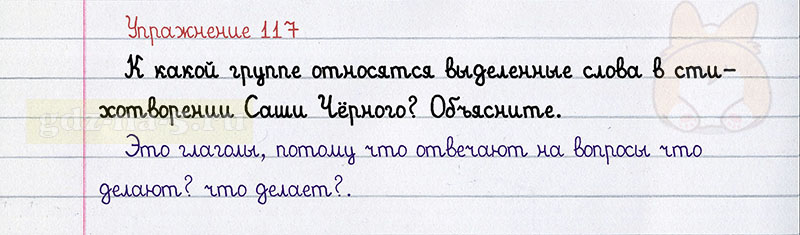 Упражнение 117
К какой группе относятся выделенные слова в сти-
хотворении Саши Чёрного? Объясните.
gdz-na-5.ru
Это глаголы, потому что отвечают на вопросы что
делают? что делает?.